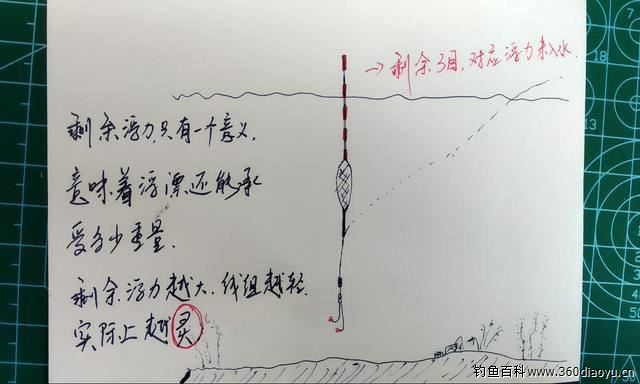 →剩余3目.对应浮力未入水.
剩余浮力只有一个意义,
意味着浮漂还能承
受多少重量.
剩余浮力越大.线组越轻.
实际上越灵
18
钓鱼百科www.360diaoyu.cn